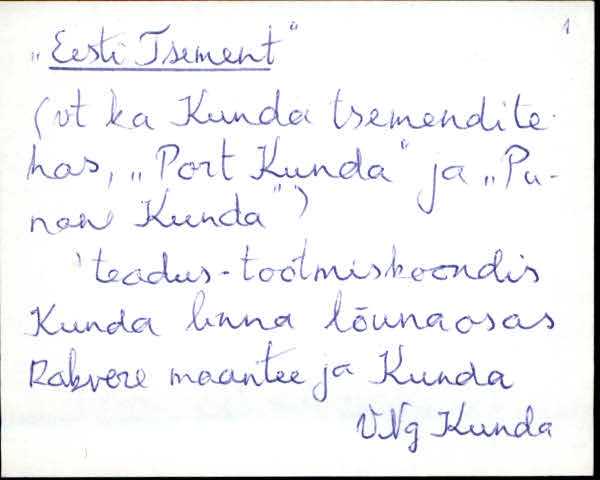 1
„Eesti Tsement"
(vt ka Kunda tsemendite-
has, „Port Kunda" ja „Pu-
nane Kunda")
'teadus-tootmiskoondis
Kunda linna lõunaosas
Rakvere maantee ja Kunda
VNg Kunda